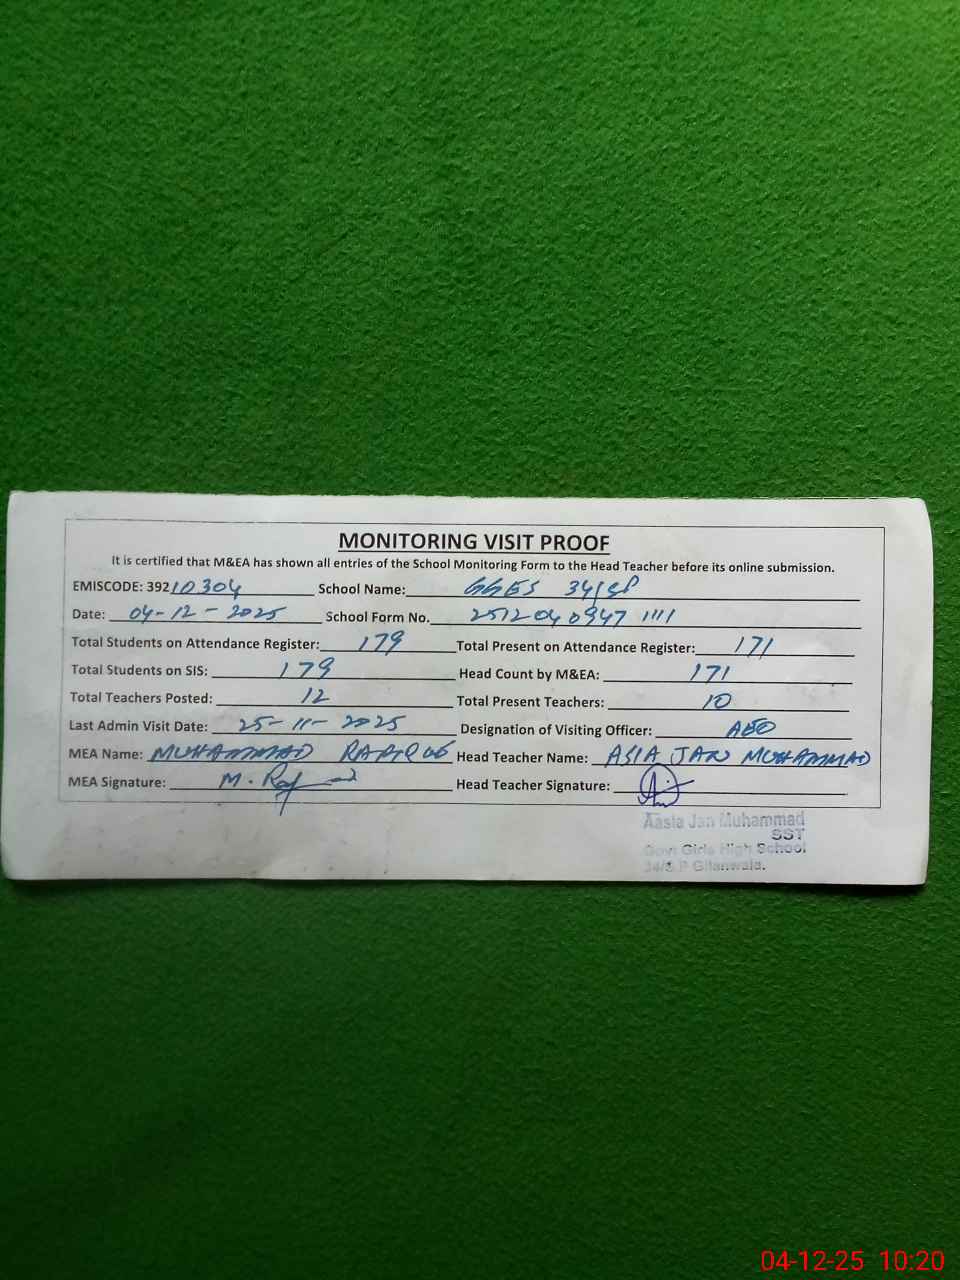 MONITORING VISIT PROOF
It is certified that M&EA has shown all entries of the School Monitoring Form to the Head Teacher before its online submission.
EMISCODE: 39210304 School Name: GGES 34/SP
Date: 04-12-2025 School Form No. 2512040947 1111
Total Students on Attendance Register: 179 Total Present on Attendance Register: 171
Total Students on SIS: 179 Head Count by M&EA: 171
Total Teachers Posted: 12 Total Present Teachers: 10
Last Admin Visit Date: 25-11-2025 Designation of Visiting Officer: AEO
MEA Name: MUHAMMAD RAFIQUE Head Teacher Name: ASIA JAN MUHAMMAD
MEA Signature: M. Head Teacher Signature:
Aasia Jan Muhammad
SST
Govt Girls High School
34/S P Gilanwala.
04-12-25 10:20